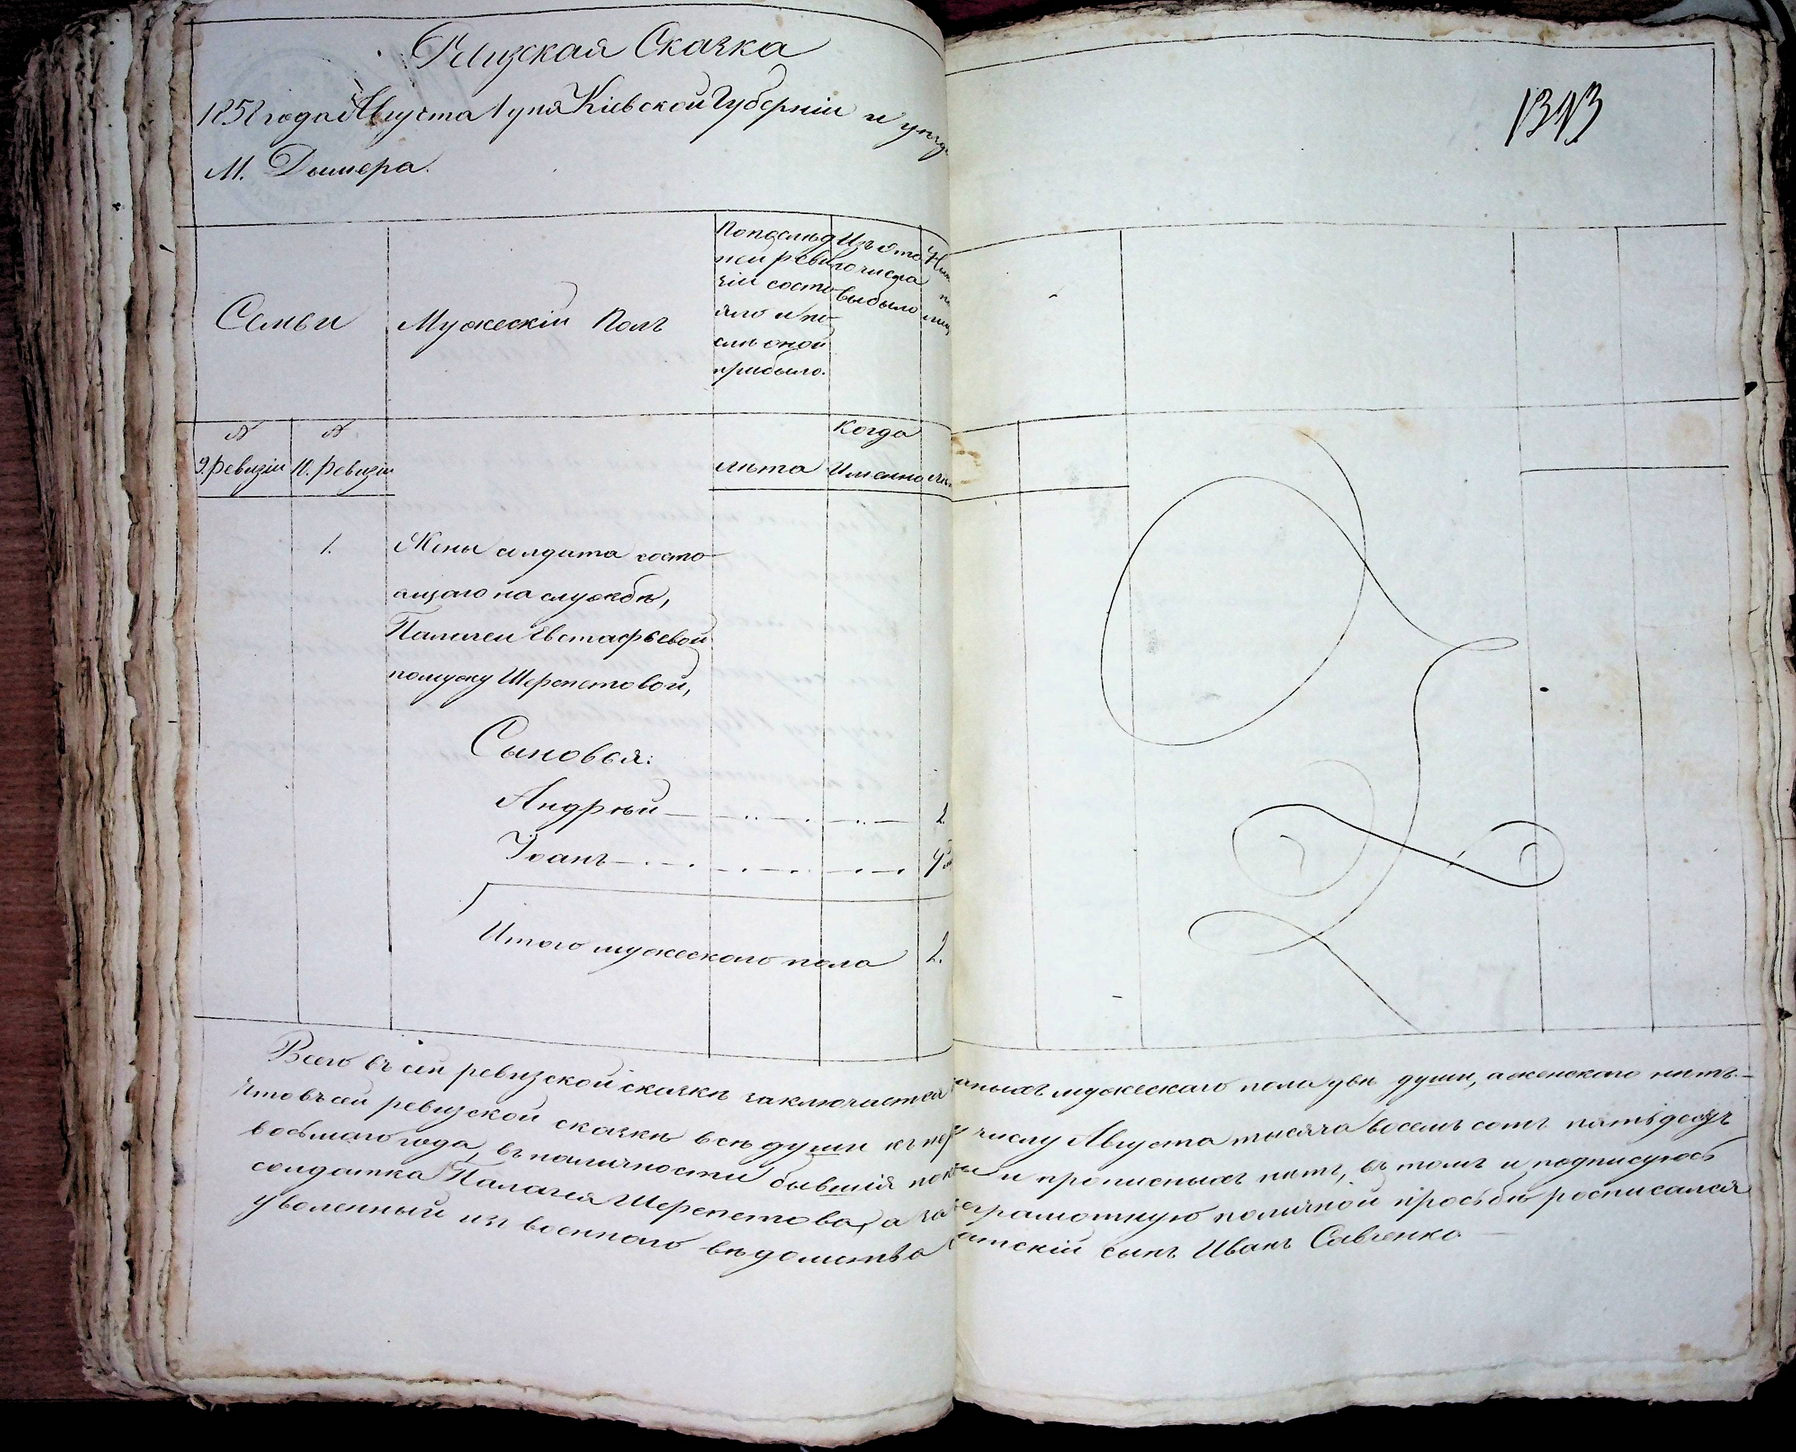 Ревизская Сказка
1858 года Августа 1 дня Кіевской Губерніи и уезда
М. Дымера.
1313
Семьи
Мужескій Полъ
По послѣд
ней реви
зіи состо
яло и по-
слѣ оной
прибыло.
Изъ то
го числа
выбыло
№
9. ревизіи
№
10. ревизіи
лѣта
Когда
Именно
1.
Жены солдата состо
ящаго на службѣ,
Палагеи Евстафьевой
по мужу Шерепетовой,
Сыновья:
Андрѣй 2.
Іоанъ
Итого мужескаго пола 2.
Всего въ сей ревизской сказкѣ заключается мужескаго пола двѣ души, а женскаго нѣтъ
что въ сей ревизской сказкѣ всѣ души къ числу Августа тысяча восемь сотъ пятьдесятъ
восьмаго года, въ наличности бывшія и прописныхъ нѣтъ, въ томъ и подписуюсь
солдатка Палагея Шерепетова, а за неграмотную по личной просьбѣ росписался
уволенный изъ военнаго вѣдомства сынъ Иванъ Савченко